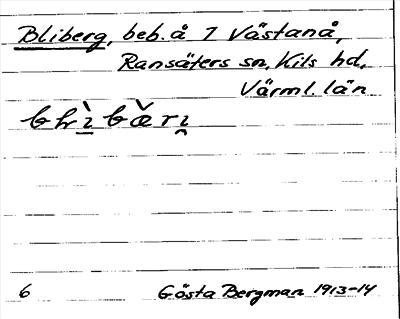 Bliberg, beb. å 7 Västanå,
Ransäters sn, Kils hd,
Värml. län
6 Gösta Bergman 1913-14